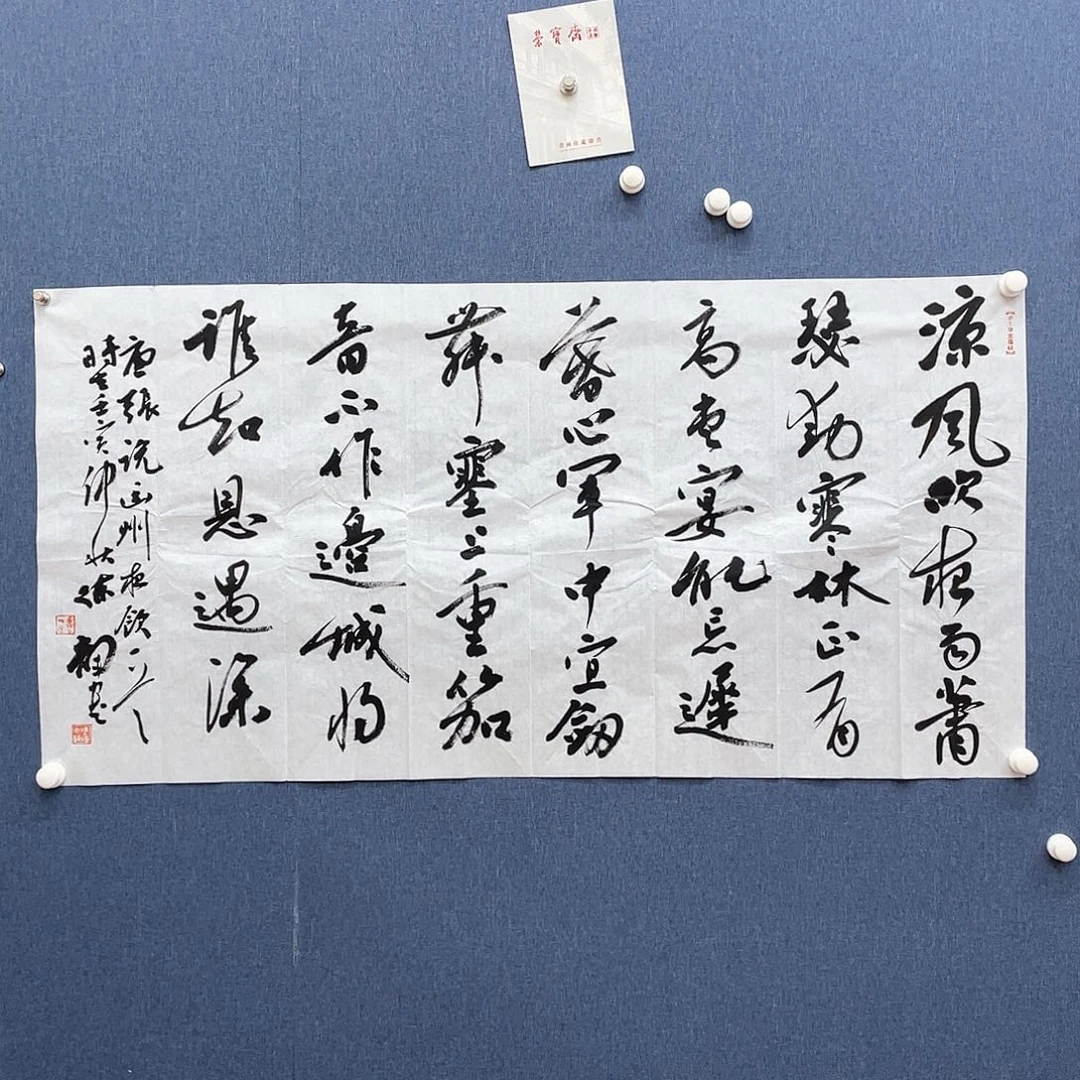 榮寶齋
涼風吹夜雨蕭
瑟動寒林正有
高堂宴能忘遲
暮心軍中宜劒
舞塞上重笳
音不作邊城将
誰知恩遇深
唐張説幽州夜飲
時在壬寅仲秋徐